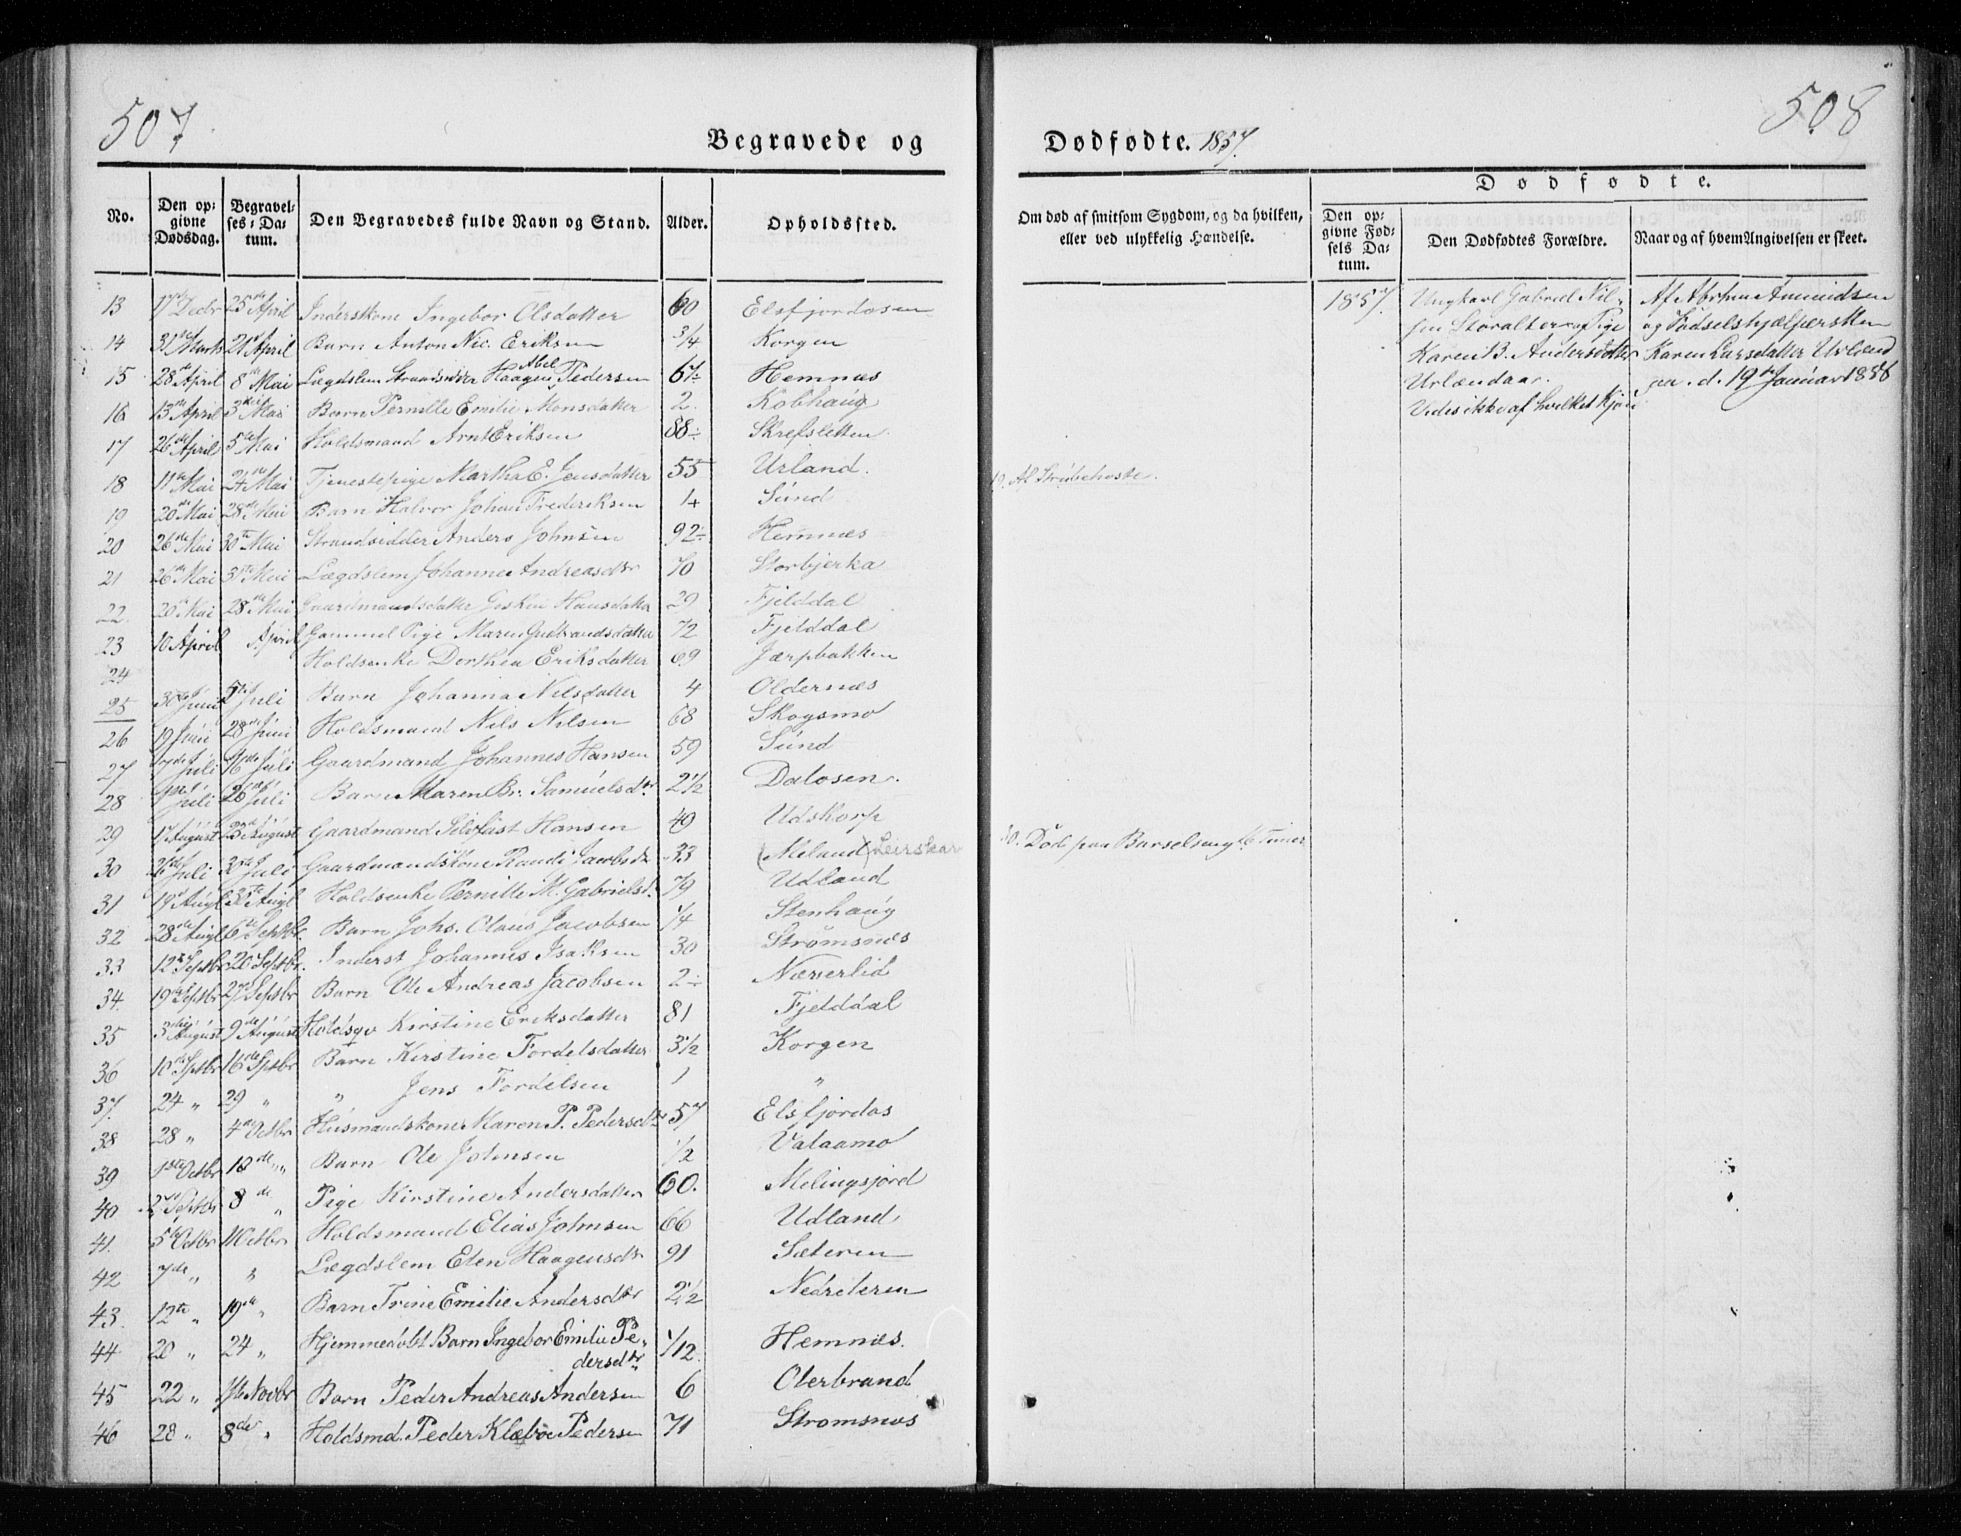 507
508
Begravede og
Dødfødte. 1857.
No.
Den op-
givne
Dødsdag.
Begravel-
ses-Da-
tum.
Den Begravedes fulde Navn og Stand.
Alder.
Opholdssted.
Om død af smitsom Sygdom, og da hvilken,
eller ved ulykkelig Hændelse.
Dødfødte.
Den op-
givne Fød-
sels Da-
tum.
Den Dødfødtes Forældre.
Naar og af hvem Angivelsen er skeet.
13 17de Decbr 25de April Inderskone Ingebor Olsdatter 60 Elsfjordosen
14 31te Marts 21de April Barn Anton Nic. Eriksen 3/4 Korgen
15 28de April 8de Mai Lægdslem Strandsidder Haagen Abel Pedersen Hemnæs
16 13de April 3die Mai Barn Pernille Emilie Monsdatter 2. Kobhaug
17 26de April 5te Mai Holdsmand Arnt Eriksen 88 Skrefsletten
18 11te Mai 24de Mai Tjenestepige Martha E. Jensdatter 55 Urland.
19 20de Mai 28de Mai Barn Halvor Johan Frederiksen Sund
20 26de Mai 30te Mai Strandsidder Anders Johnsen 92 Hemnæs
21 26de Mai 31te Mai Lægdslem Johanne Andreasdtr 70 Storbjerka
22. 20de Mai 28de Mai Gaardmandsdatter Hansdatter 29 Fjelddal
23 10 April April Gammel Pige Maren Gulbrandsdatter 72 Fjelddal
24 Holdsenke Dorthea Eriksdatter 69 Jærpbakken
25 30te Juni 5te Juli Barn Johanna Nilsdatter 4 Oldernæs
26 19 Juni 28de Juni Holdsmand Nils Nilsen 68 Skogsmo
27 7de Juli 16de Juli Gaardmand Johannes Hansen 59 Sund
28 Juli 26de Juli Barn Maren Br. Samuelsdtr 2 1/2 Dalosen.
29 17 August August Gaardmand Silvfast Hansen 49 Udskorp
30 Juli Juli Gaardmandskone Randi Jacobsdtr 33 (Meland) Leirskar
31 19de Augt Augt Holdsenke Pernille M. Gabrielsd. 79 Udland
32 28de Augt 6te Septbr. Barn Johs. Olaus Jacobsen 1/4 Stenhaug
33 12te Septbr 20 Septbr. Inderst Johannes Isaksen 30 Strømsnæs
34. 19de Septbr 27de Septbr Barn Ole Andreas Jacobsen 2 Næverlid
35 3die August 9de August Kirstine Eriksdatter 81 Fjelddal
36 10de Sptbr 16de Sptbr Barn Kirstine Fordelsdatter 3 1/2 Korgen
37. 24 „ 29 „ „ Jens Fordelsen 1 „
38 28 „ 4de Octbr Husmandskone Karen P. Pedersdtr 57 Elsfjordos
39 1ste Octbr 18de „ Barn Ole Johnsen 1/2 Valaamo
40 Septbr 8de „ Pige Kirstine Andersdatter 60. Melingsjord
41. 5te Octbr 11 Octbr Holdsmand Elias Johnsen 66 Udland
42 7de „ „ Lægdslem Elen Haagensdtr 91 Sæteren
43. 12te „ 19de „ Barn Trine Emilie Andersdtr 2 1/2 Nedreleren
44 20 „ 24 „ Hjemmedøbt Barn Ingebor Emilie Pe-
dersdtr 1/12. Hemnæs.
45 22 „ 1ste Novbr Barn Peder Andreas Andersen 6 Olerbrand
46 28 „ 8de „ Holdsmd. Peder Klæboe Pedersen 71 Strømsnæs
19. Af Strubehoste.
30. Død paa Barselseng
1857. Ungkarl Gabriel Nil-
sen Storalteren Pige
Karen B. Andersdatter
Urlandaar.
Vides ikke af hvilket Kjøn
Af Abrhm Amundsen
og Fødselshjælpersken
Karen Larsdatter Urland
d. 19de Januar 1858